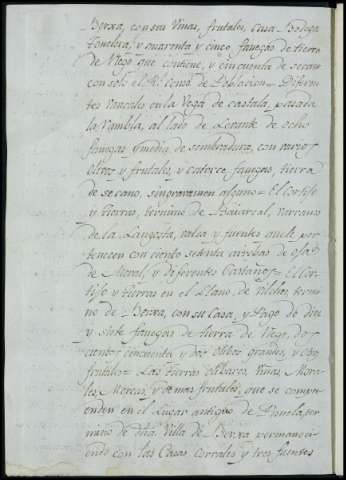 Berxa, con sus Viñas, frutales, Casa Bodega
tonelera, y quarenta y cinco fanegas de tierra
de riego que contiene, y cincuenta de secano
con solo el Rl. Censo de Poblacion = Diferen
tes vancales en la Vega de Castala, pasada
la Rambla, al lado de Levante de ocho
fanegas y media de sembradura, con varios
olivos y frutales, y catorce fanegas, tierra
de secano, sin gravamen alguno = El cortijo
y tierras, termino de Baiarcal, varranco
de la Langosta, valsa y fuentes que le per
tenecen con ciento setenta arrobas de oja
de Moral, y diferentes Castaños = El Cor
tijo y tierras en el Llano de Vilches, termi
no de Berxa, con su Casa, y Pago de diez
y siete fanegas de tierra de riego, do
cientos cincuenta y dos olibos grandes, y otros
frutales = Las tierras olibares, Viñas Mora
les, Moreras, y demas frutales, que se compre
enden en el Lugar antiguo de Penela, ter
mino de dha. Villa de Berxa permaneci
endo con las Casas Corrales y tres fuentes